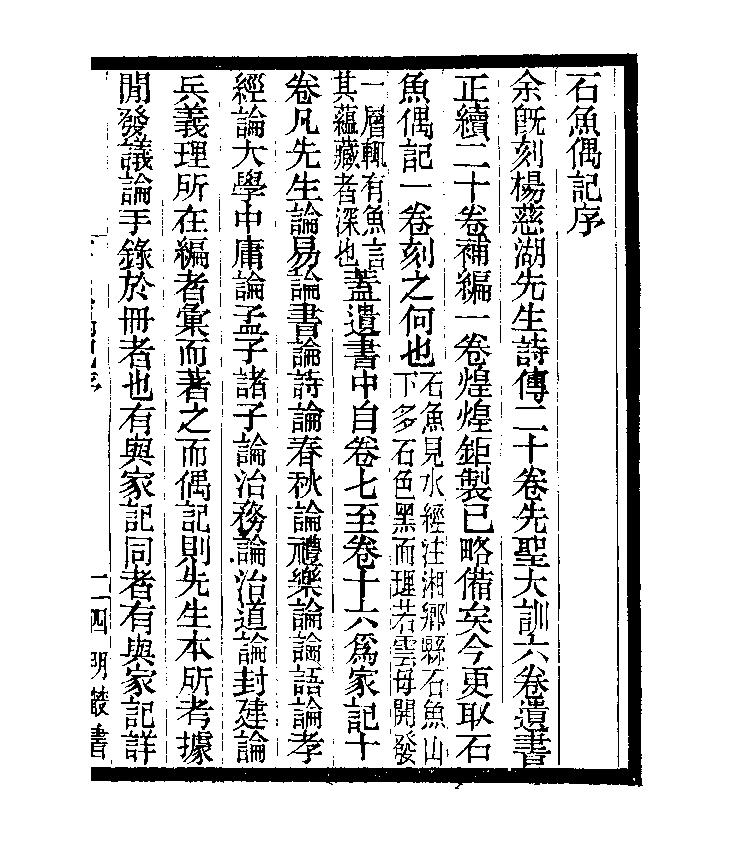 石魚偶記序
余旣刻楊慈湖先生詩傳二十卷先聖大訓六卷遺書
正續二十卷補編一卷煌煌鉅製已略備矣今更取石
魚偶記一卷刻之何也石魚見水經注湘鄉縣石魚山
下多石色黑而理若雲母開發
一層輒有魚言
其蘊藏者深也蓋遺書中自卷七至卷十六爲家記十
卷凡先生論易論書論詩論春秋論禮樂論論語論孝
經論大學中庸論孟子諸子論治務論治道論封建論
兵義理所在編者彙而著之而偶記則先生本所考據
閒發議論手錄於冊者也有與家記同者有與家記詳
四明叢書